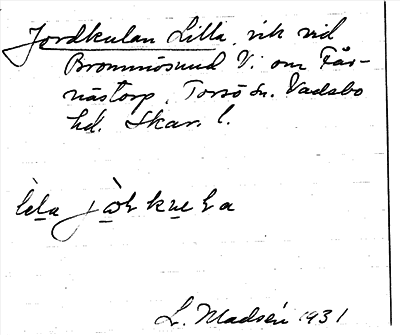 Jordkulan Lilla, vik vid
Brommösund V. om Får-
nästorp, Torsö sn. Vadsbo
hd. Skar. l.
L. Madsén 1931